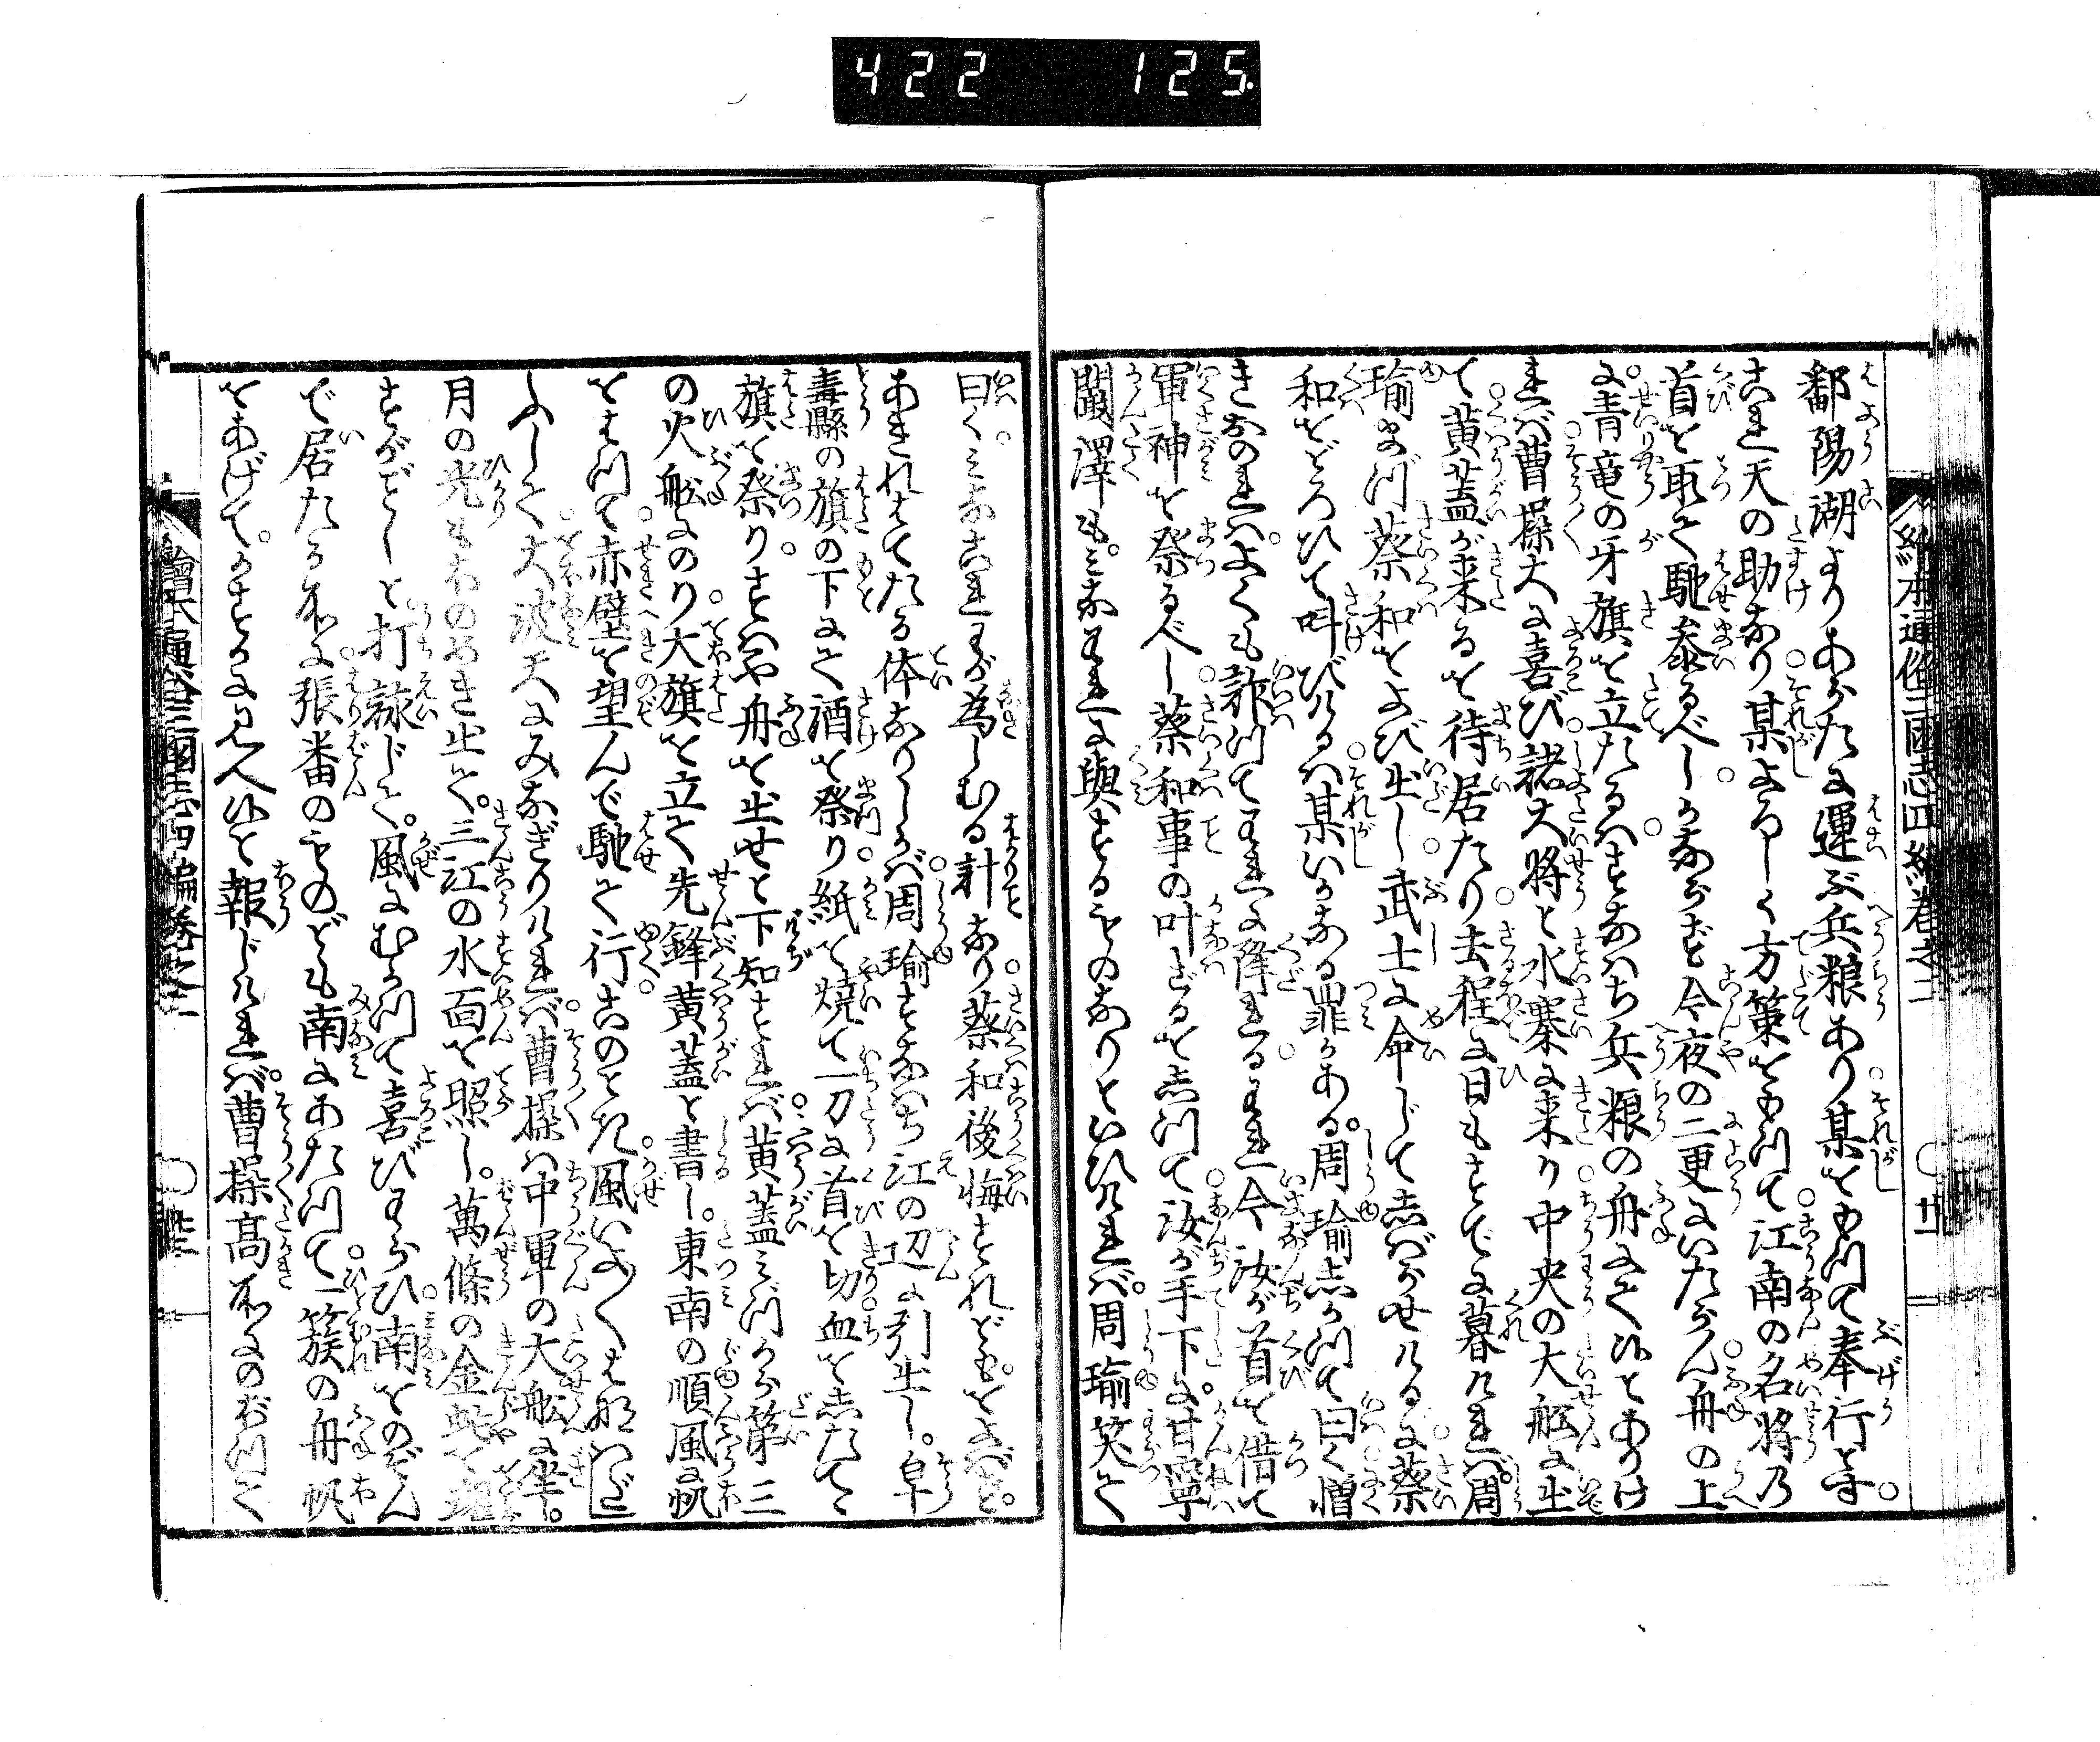 422 125.
繪本通俗三國志四編卷之二 廿二
鄱陽湖よりあらたに運ぶ兵粮あり某をもつて奉行とす。
これ天の助なり某よろしく方策をもつて江南の名将の
首を取て馳参るべしかならず今夜の二更にいたらん舟の上
に青竜の牙旗を立たるハすなハち兵粮の舟にて候とありけ
れバ曹操大に喜び諸大将と水寨に来り中央の大舩に坐し
て黄蓋が来るを待居たり去程に日もすでに暮けれバ周
瑜まづ蔡和をよび出し武士に命じてしばらせけるに蔡
和をどろひて叫びけるハ某いかなる罪かある。周瑜しかつて曰く憎
きおのれハよくも詐つてわれに降れるわれ今汝が首を借て
軍神を祭るべし蔡和事の叶ざるをしつて汝が手下に甘寧
闞澤も。ミなわれに與するものなりといひけれバ。周瑜笑て
曰く。ミなこれわが為しむる計なり蔡和後悔すれども。をよバず。
あきれはてたる体なりしかバ周瑜すなハち江の辺に引出し。皁
毒縣の旗の下にて酒を祭り紙を焼て一刀に首を切血をしたてゝ
旗を祭りすハや舟を出せと下知すれバ黄蓋ミづから第三
の火舩にのり大旗を立て先鋒黄蓋と書し。東南の順風に帆
をはつて赤壁を望んで馳て行このとき風いよ〱はげ
しくして大波天にみなぎりけれバ曹操ハ中軍の大舩に坐し。
月の光もわのめき出て。三江の水面を照し。萬條の金蛇を
すがごとしと打詠じて。風にむかつて喜びわらひ南をのぞん
で居たる所に張番のものども南にあたつて一簇の舟帆
をあげて。かすかに見へ候と報じけれバ。曹操高所にのぼつて
繪本通俗三國志四編卷之二